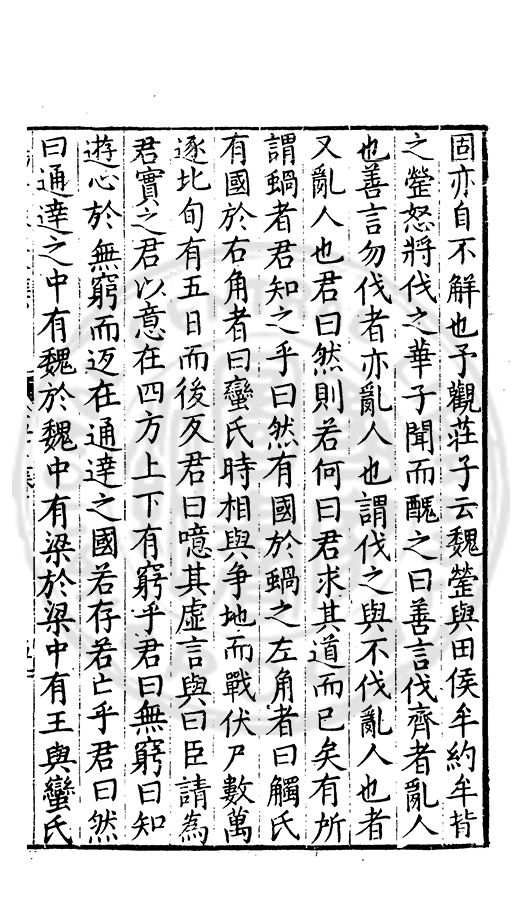 固亦自不解也予觀莊子云魏瑩與田侯牟約牟背
之瑩怒將伐之華子聞而醜之曰善言伐齊者亂人
也善言勿伐者亦亂人也謂伐之與不伐亂人也者
又亂人也君曰然則若何曰君求其道而已矣有所
謂蝸者君知之乎曰然有國於蝸之左角者曰觸氏
有國於右角者曰蠻氏時相與争地而戰伏尸數萬
逐北旬有五日而後反君曰噫其虛言與曰臣請為
君實之君以意在四方上下有窮乎君曰無窮曰知
遊心於無窮而反在通達之國若存若亡乎君曰然
曰通達之中有魏於魏中有梁於梁中有王與蠻氏